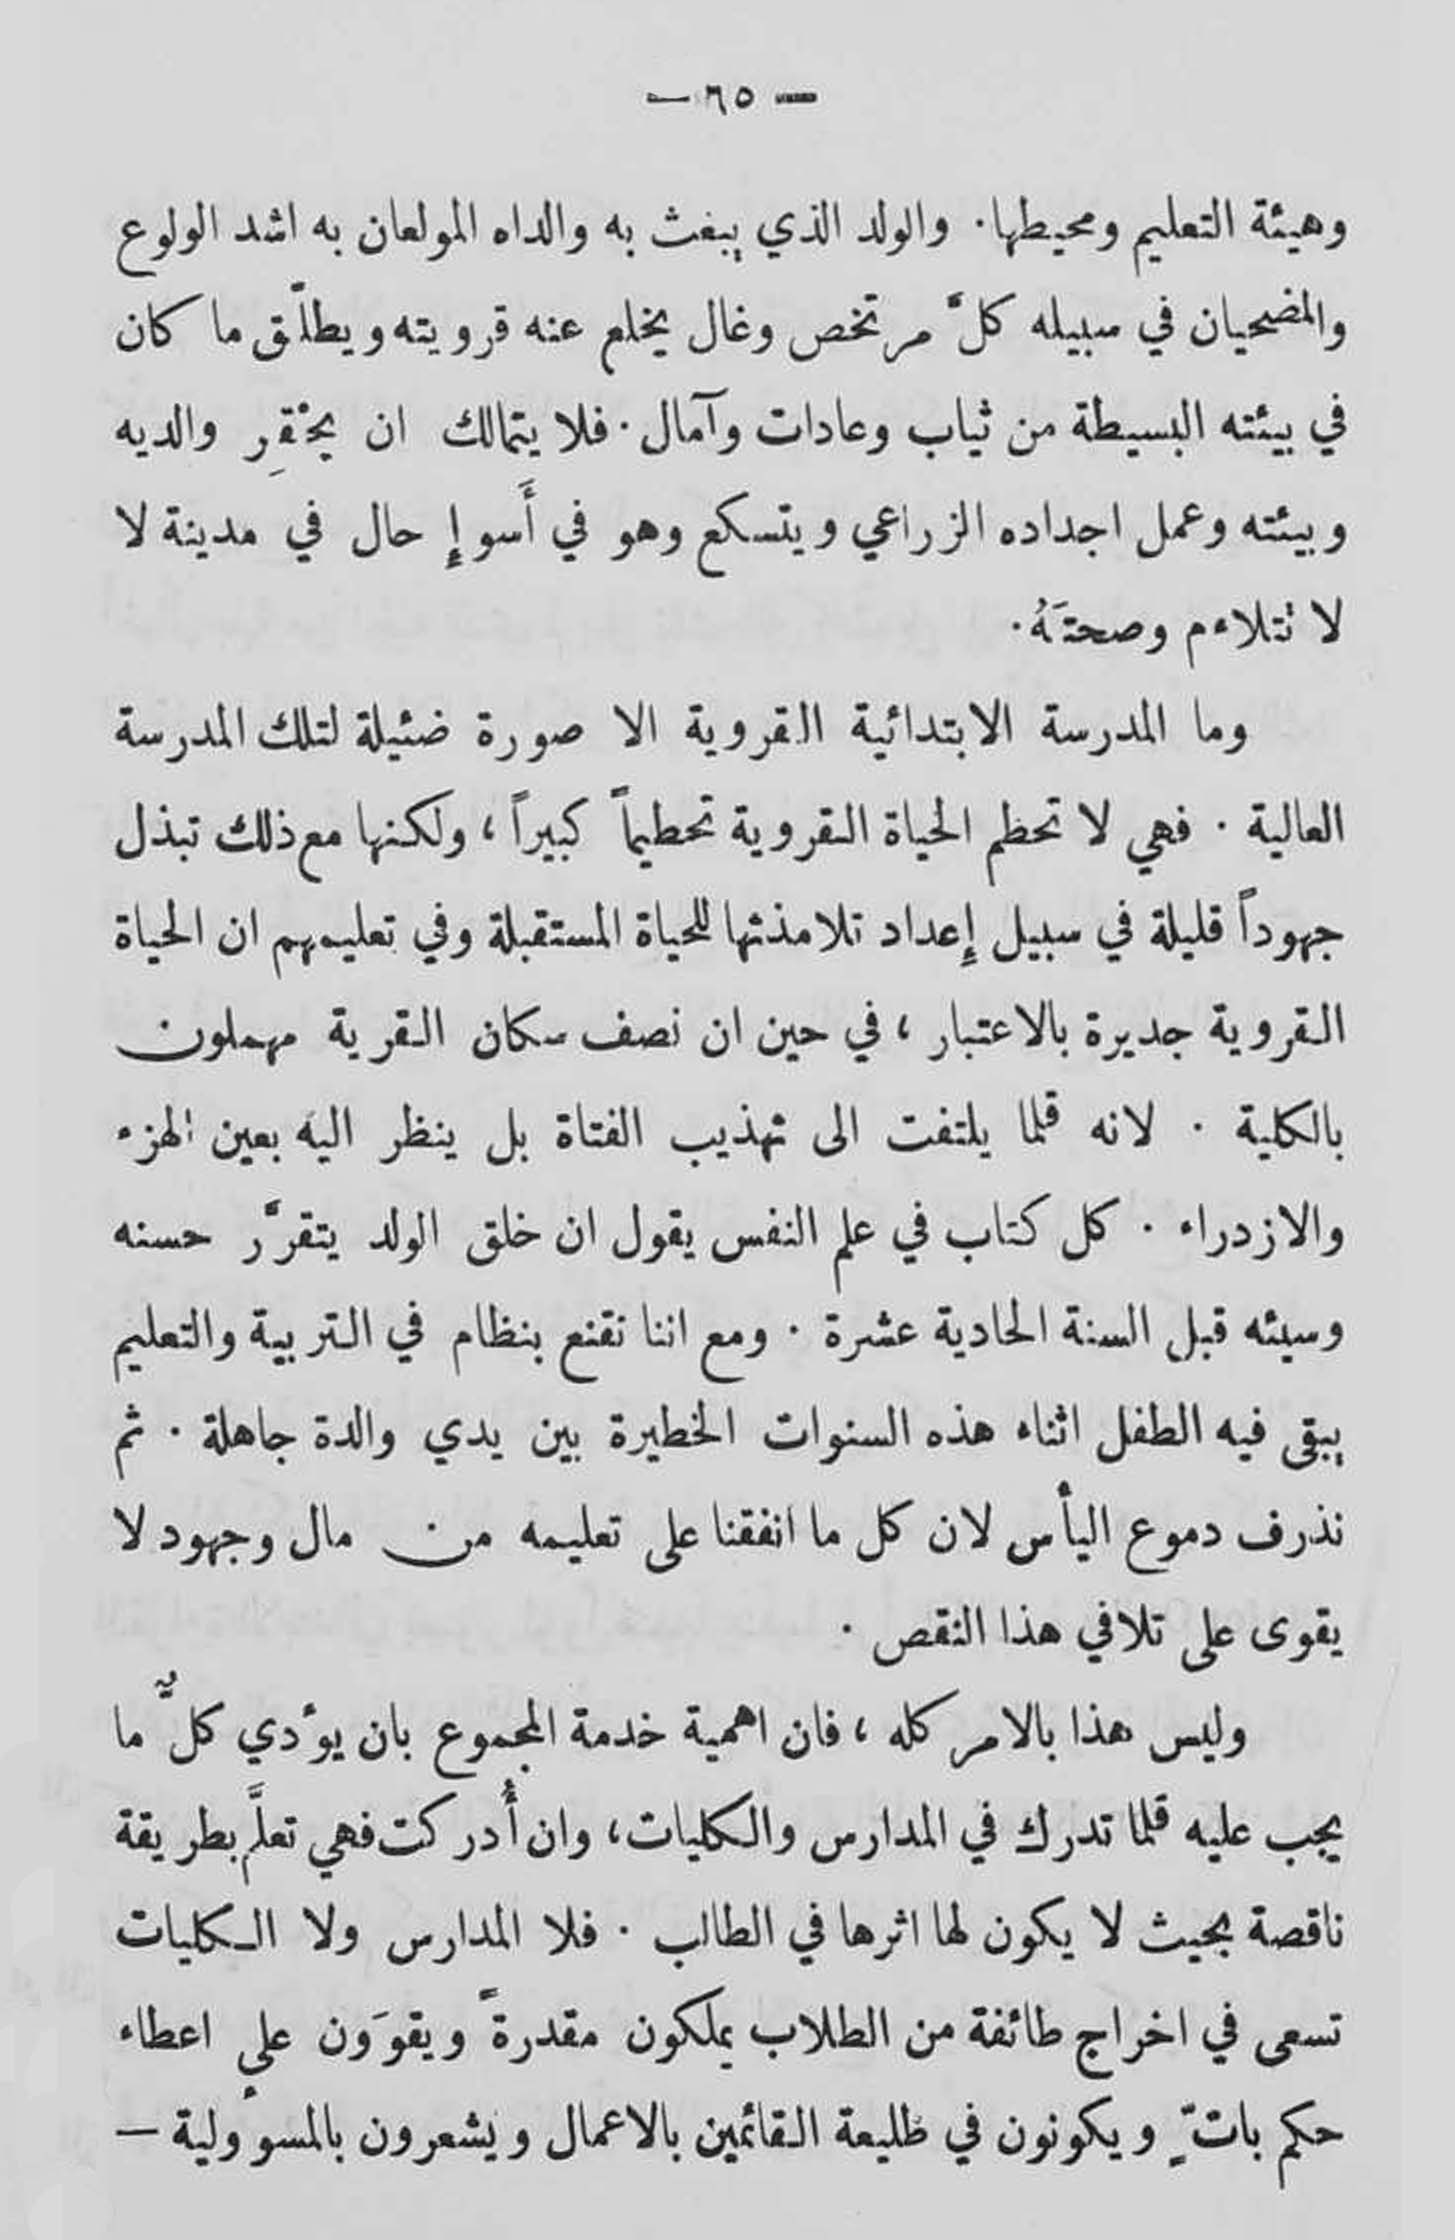 — ٦٥ —
وهيئة التعليم ومحيطها. والولد الذي يبغث به والداه المولعان به اشد الولوع
والمضحيان في سبيله كلَّ مرتخص وغال يخلع عنه قرويته ويطلّق ما كان
في بيئته البسيطة من ثياب وعادات وآمال. فلا يتمالك ان يحْقِر والديه
وبيئته وعمل اجداده الزراعي ويتسكع وهو في أَسوإِ حال في مدينة لا
لا تتلاءم وصحتَهُ.
وما المدرسة الابتدائية القروية الا صورة ضئيلة لتلك المدرسة
العالية . فهي لا تحظم الحياة القروية تحطيماً كبيراً ، ولكنها مع ذلك تبذل
جهوداً قليلة في سبيل إِعداد تلامذتها للحياة المستقبلة وفي تعليمهم ان الحياة
القروية جديرة بالاعتبار ، في حين ان نصف سكان القرية مهملون
بالكلية . لانه قلما يلتفت الى تهذيب الفتاة بل ينظر اليه بعين الهزء
والازدراء . كل كتاب في علم النفس يقول ان خلق الولد يتقرَّر حسنه
وسيئه قبل السنة الحادية عشرة . ومع اننا نقنع بنظام في التربية والتعليم
يبقى فيه الطفل اثناء هذه السنوات الخطيرة بين يدي والدة جاهلة . ثم
نذرف دموع اليأس لان كل ما انفقنا على تعليمه من مال وجهود لا
يقوى على تلافي هذا النقص .
وليس هذا بالامر كله ، فان اهمية خدمة المجموع بان يؤدي كلٌّ ما
يجب عليه قلما تدرك في المدارس والكليات، وان أُدركت فهي تعلَّم بطريقة
ناقصة بحيث لا يكون لها اثرها في الطالب . فلا المدارس ولا الكليات
تسعى في اخراج طائفة من الطلاب يملكون مقدرةً ويقوَون على اعطاء
حكم باتٍّ ويكونون في ظليعة القائمين بالاعمال ويشعرون بالمسؤولية —